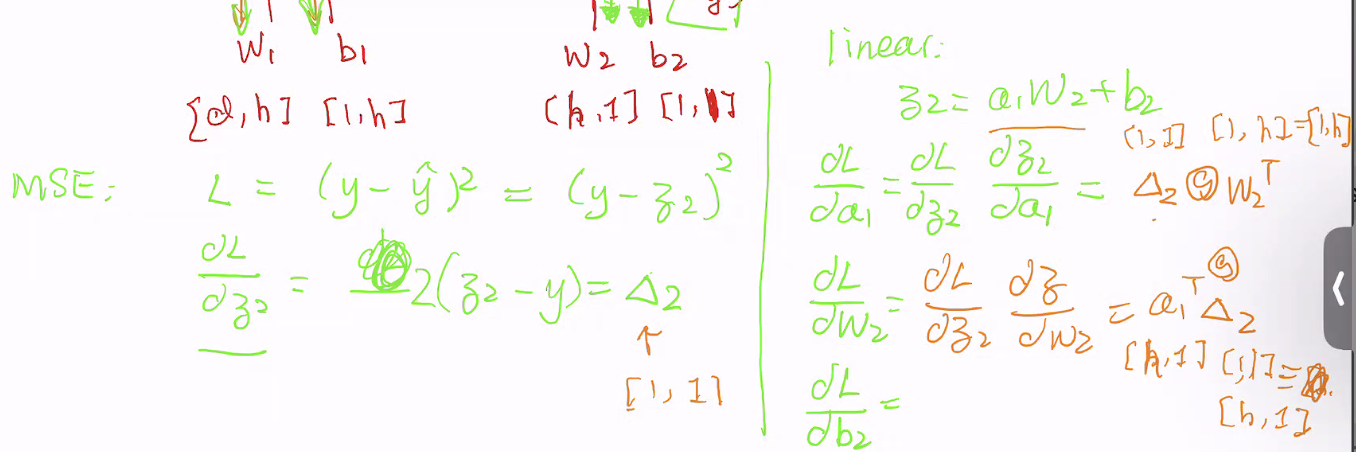 W₁ b₁ W₂ b₂
[d, h] [1, h] [h, 1] [1, 1]
MSE: L = (y - ŷ)² = (y - z₂)²
∂L/∂z₂ = 2(z₂ - y) = Δ₂
↑
[1, 1]
linear:
z₂ = a₁W₂ + b₂
[1, 1] [1, h] = [1, h]
∂L/∂a₁ = ∂L/∂z₂ ∂z₂/∂a₁ = Δ₂ @ W₂ᵀ
∂L/∂W₂ = ∂L/∂z₂ ∂z/∂W₂ = a₁ᵀ @ Δ₂
[h, 1] [1, 1] =
[h, 1]
∂L/∂b₂ =